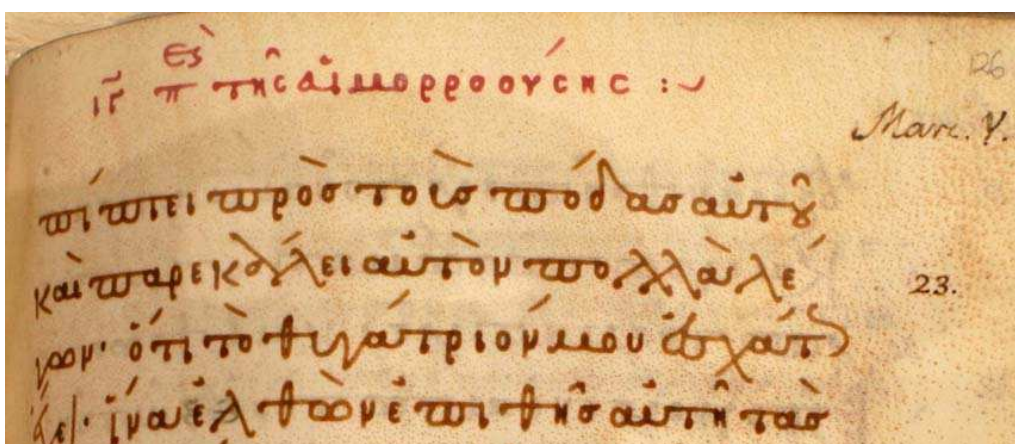 126
ιγ π τῆς αἱμορροούσης :
Marc. V.
πίπτει πρὸς τοὺς πόδας αὐτοῦ
καὶ παρεκάλει αὐτὸν πολλὰ λέ
23.
γων· ὅτι τὸ θυγάτριόν μου ἐσχάτ
ἔχει· ἵνα ἐλθὼν ἐπιθῇς αὐτῇ τὰς